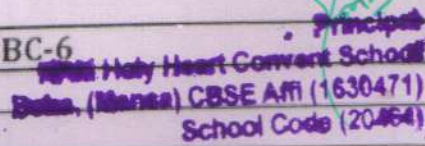 BC-6
Principal
Holy Heart Convent School
(Mansa) CBSE Affi (1630471)
School Code (20464)